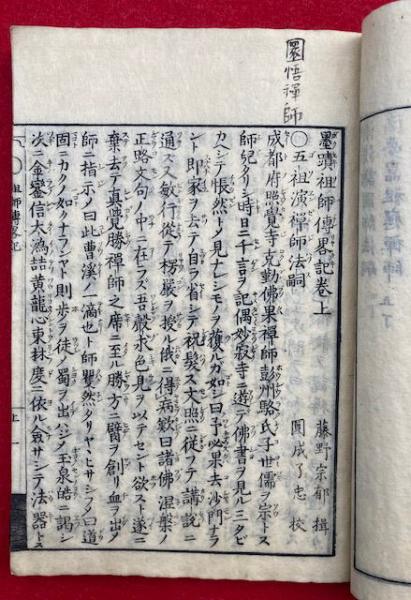 圜悟禪師
墨蹟祖師傳畧記卷上
藤野宗郁 揖
〇五祖演禪師法嗣
圓成了忠 校
成都府照覺寺克勤佛果禪師彭州駱氏子世儒ヲ宗トス
師紀タリシ時日ニ千言ヲ記ス偶妙寂寺ニ遊テ佛書ヲ見ル三タビ
カヘシテ悵然トノ見ナレシモノヲ獲ルガ如シ曰予必果去沙門ナラ
ント即家ヲ去テ自ラ省シテ祝髪ス文照ニ從ツテ講説ニ
通ス又敏行從テ楞嚴ヲ授ル俄ニ得病歎曰諸佛涅槃ノ
正路文句ノ中ニ在ラズ吾聲求色見ヲ以テセント欲スト遂ニ
棄去テ真覺勝禪師之席ニ至ル勝方ニ臂ヲ創リ血ヲ出ノ
師ニ指示ノ曰此曹溪ノ一滴也ト師矍然タリヤヽヒサシフノ曰道
固ニカクノ如クナランヤト則歩ヲ徒ノ蜀ヲ出ハジメ玉泉皓ニ謁シ
次ニ金鑾信大溈喆黄龍心東林度ニ依ル僉サシテ法器トス
祖師傳畧記
上 一